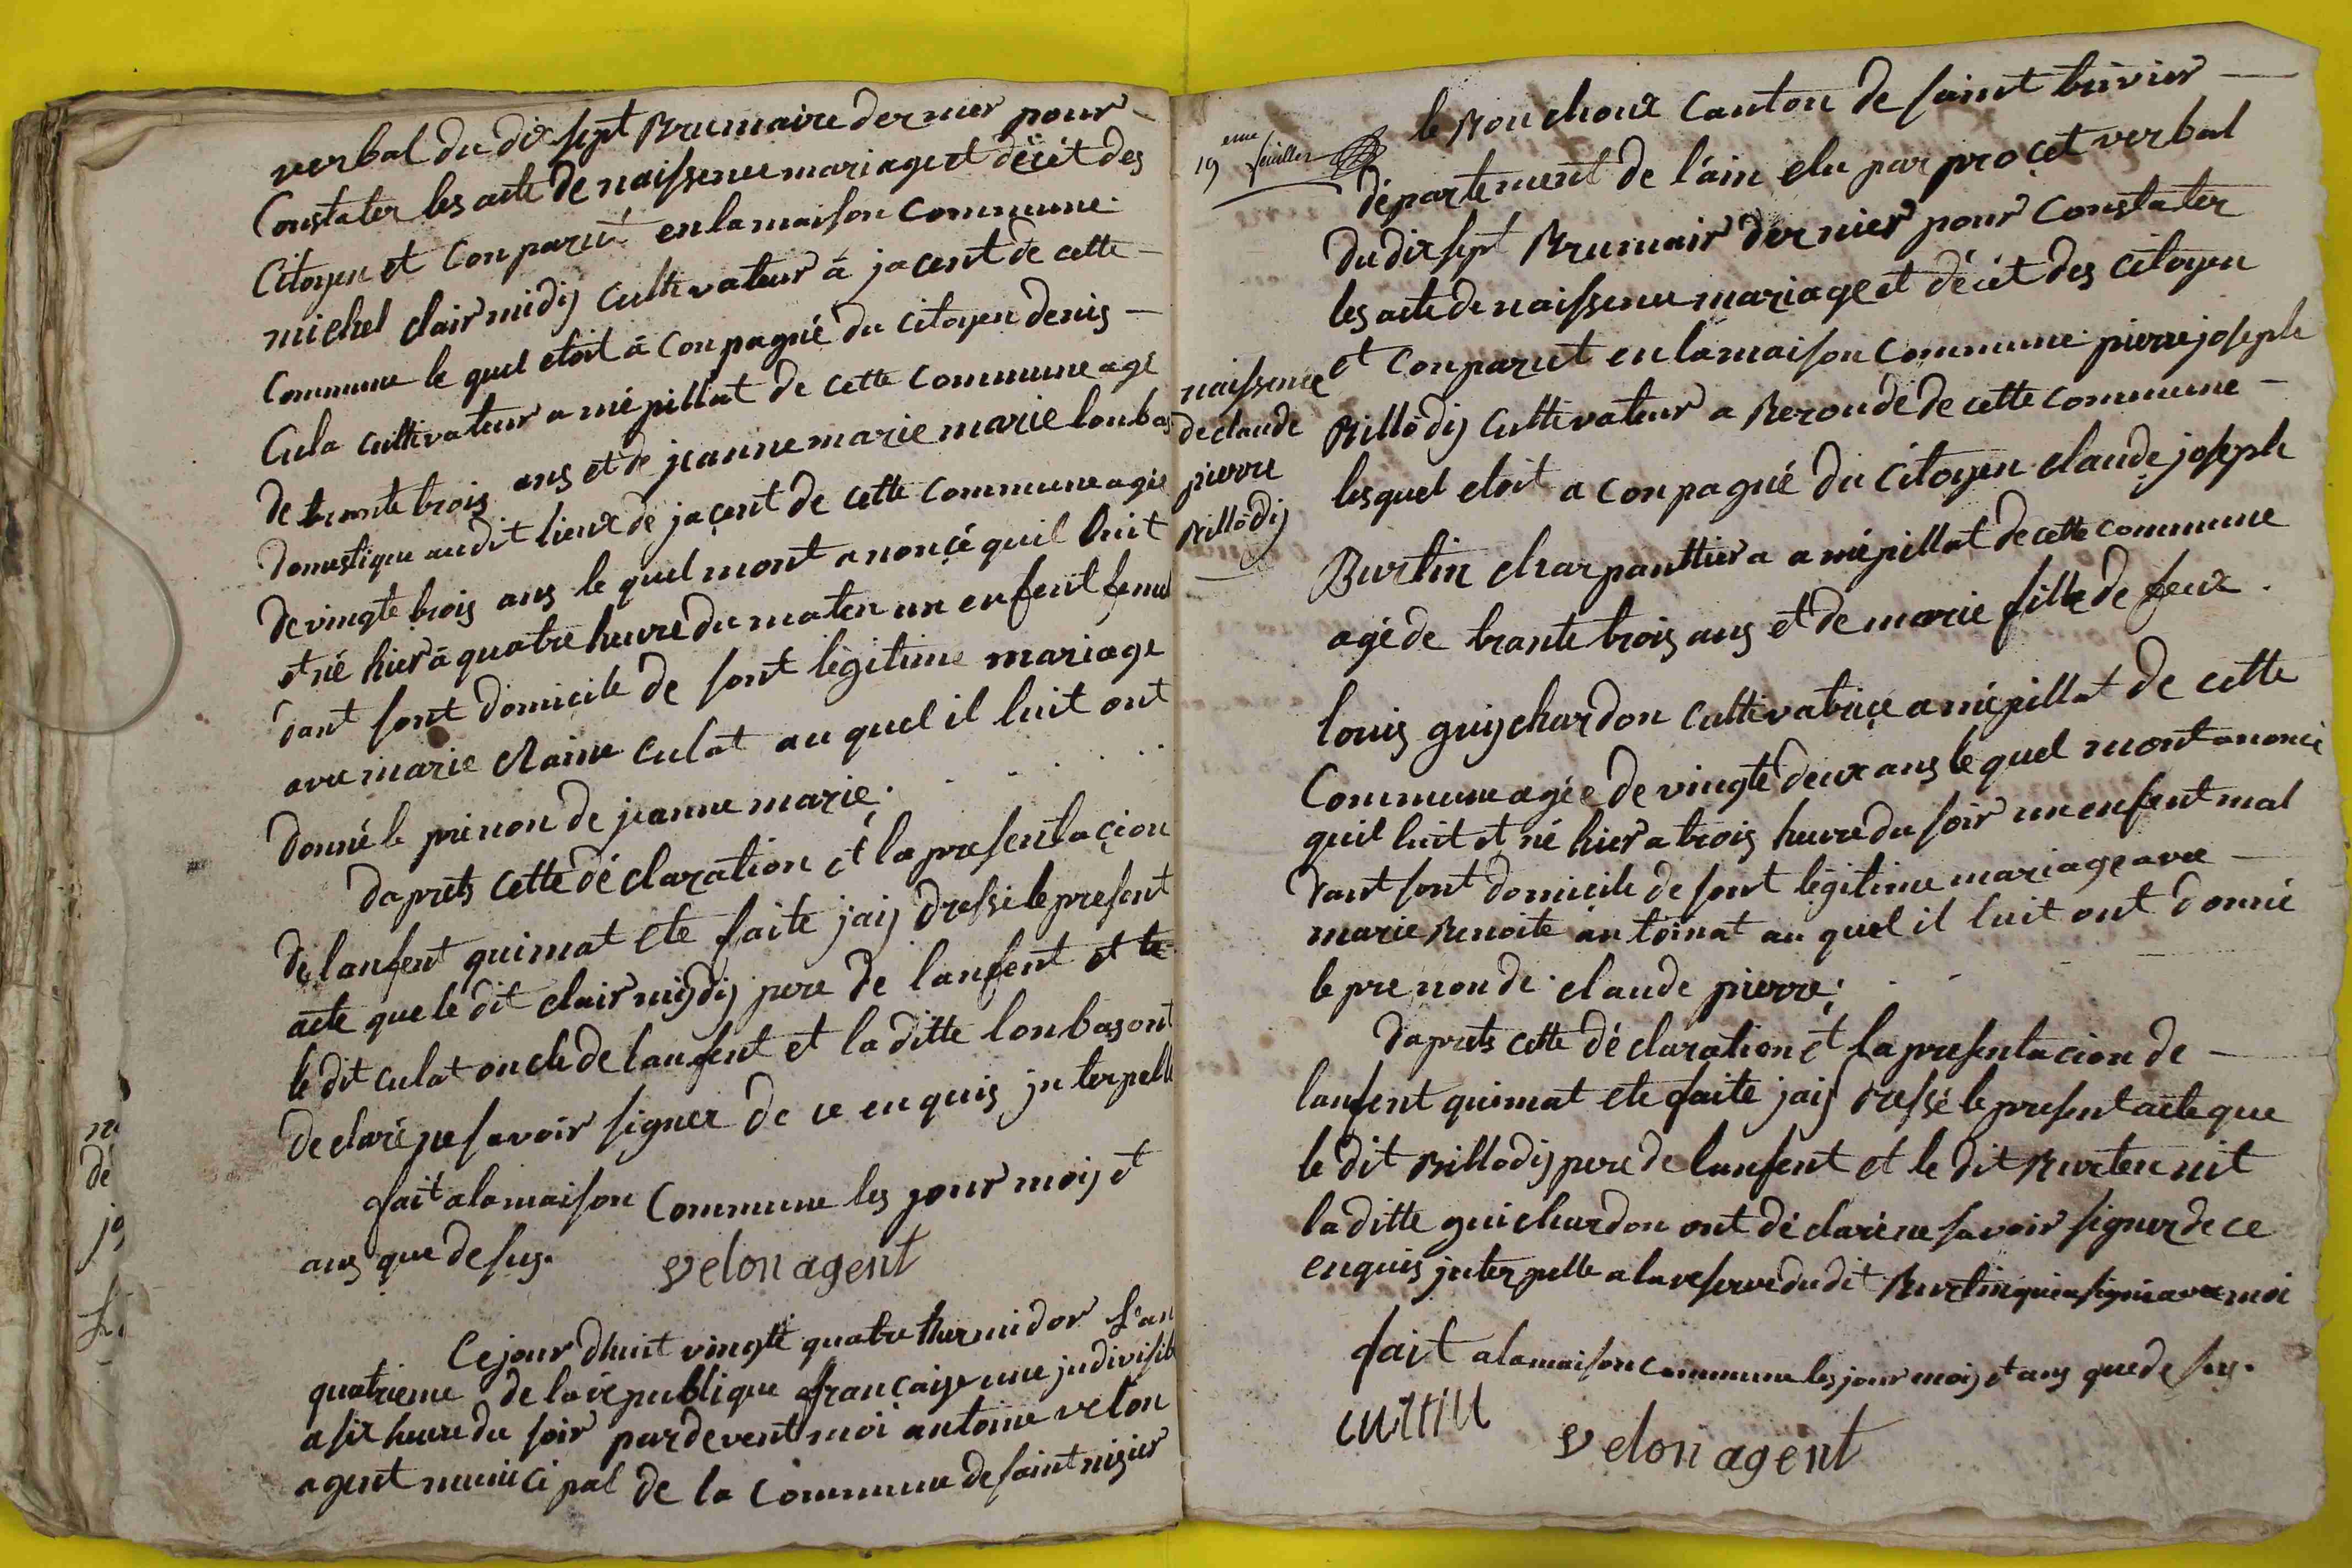 verbal du dix sept Brumaire dernier pour
Constater les acte de naissence mariage et décèt des
Citoyen et Conparut en la maison Commune
michel clair midy Cultivateur à jacent de cette
Commune le quel etoit à Conpagné du Citoyen denis
Cula cultivateur a mépillat de cette Commune agé
de trante trois ans et de jeanne marie marie lonbas
domestique au dit lieux de jacent de cette Commune agée
de vingte trois ans le quel mont anoncé quil luit
et né hier à quatre heure du maten un enfent femel
dant sont domicile de sont légitime mariage
avec marie claine culat au quel il luit ont
donné le prénon de jeanne marie.
daprets cette déclaration et la presentacion
de lanfent quimat ete faite jaij dressé le present
acte que le dit clair mijdij pere de lanfent et le
le dit culat oncle de lanfent et la ditte lonbas ont
declaré ne savoir signer de ce en quis jnterpellé
fait a la maison Commune les jour mois et
ans que desus. velon agent
Ce jour dhuit vingte quatre thermidor l'an
quatrieme de la republique française une jndivisib
a six heure du soir pardevent moi antoine velon
agent municipal de la Commune de saint nizier
19 eme feuillet
le Bouchoux Canton de saint trivier
département de l'ain elu par procet verbal
du dix sept Brumair dernier pour Constater
les acte de naissence mariage et décèt des citoyen
et Conparut en la maison Commune pierre joseph
Billodij Cultivateur a Beronde de cette Commune
lesquel etoit a conpagné du Citoyen claude joseph
Burtin charpanttier a a mépillat de cette commune
agé de trante trois ans et de marie fille de feux
louis guijchardon cultivatrice a mépillat de cette
Commune agée de vingte deux ans le quel mont anoncé
quil luit et né hier a trois heure du soir un enfent mal
dant sont domicile de sont légitime mariage avec
marie Benoite antoinat au quel il luit ont donné
le pre non de claude pierre.
naissence
de claude
pierre
Billodij
daprets cette déclaration et la presentacion de
lanfent quimat ete faite jaij dressé le present acte que
le dit Billodij pere de lanfent et le dit Burten nit
la ditte guichardon ont déclaré ne savoir signer de ce
enquis jnterpelle a la reserve du dit Burtin qui a signé avec moi
fait a la maison commune les jour mois et ans que desus.
velon agent